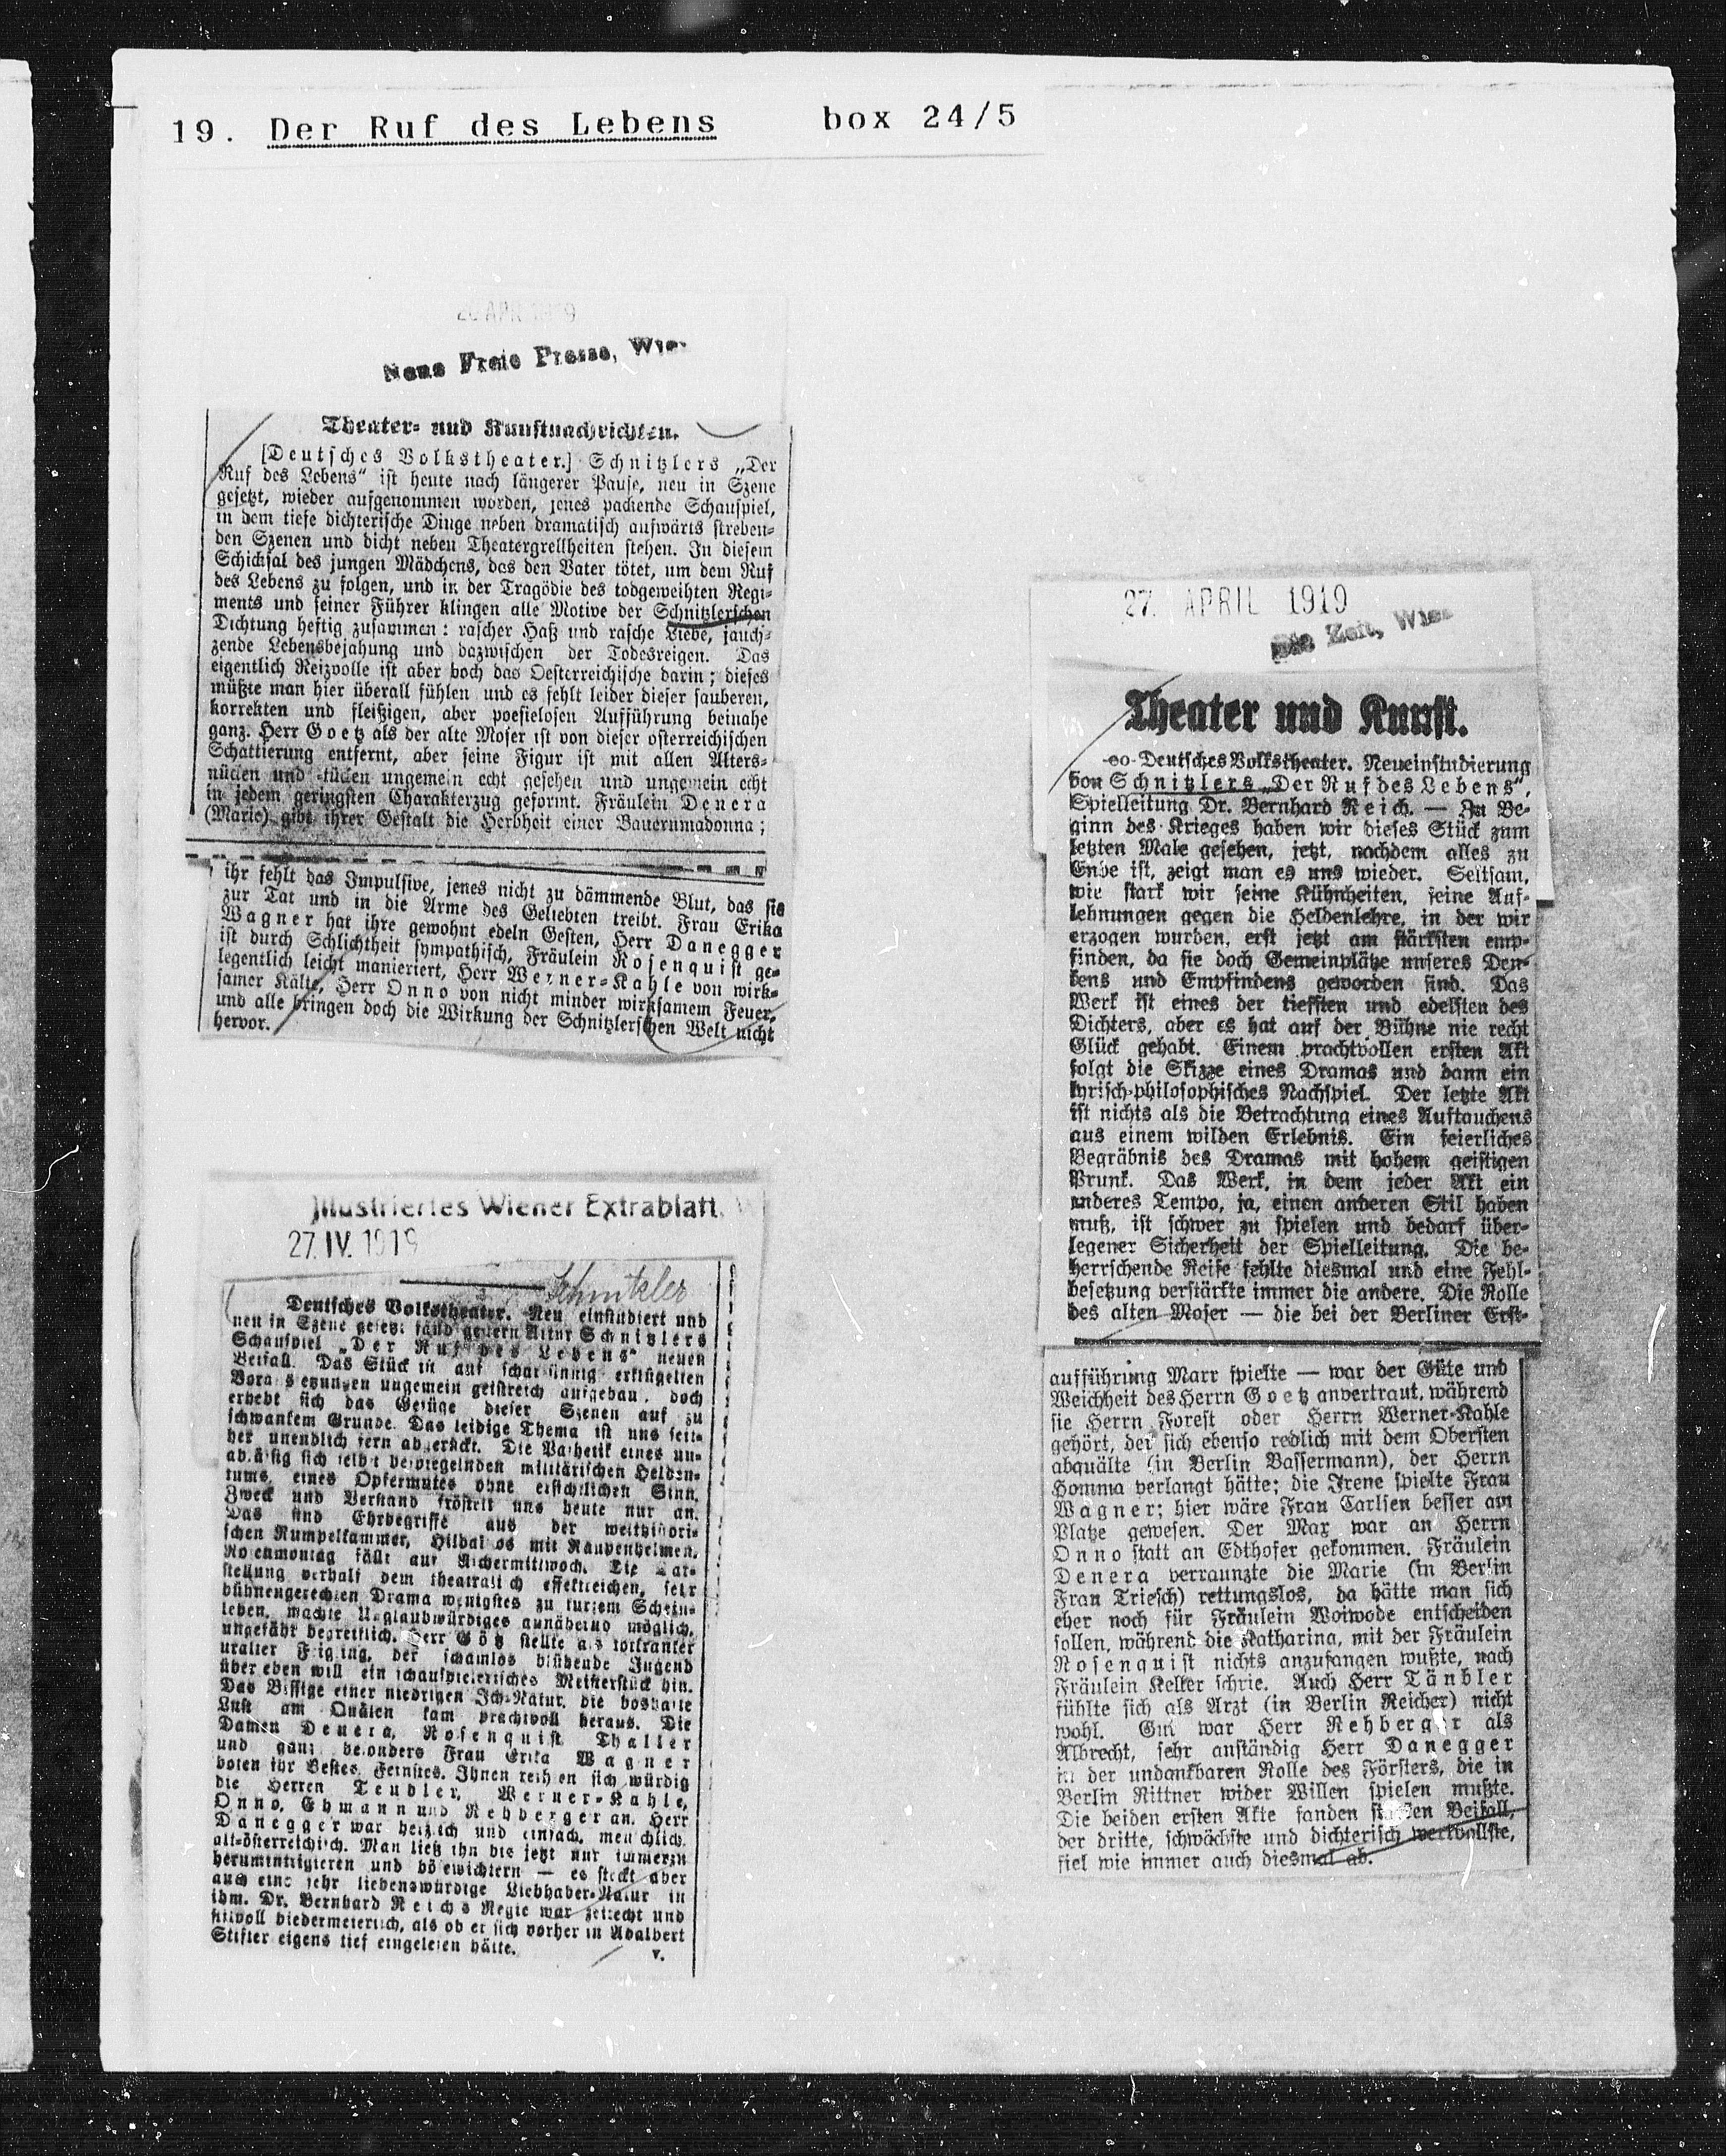 19. Der Ruf des Lebens box 24/5
Neue Freie Presse, Wie
Theater- und Kunstnachrichten.
[Deutsches Volkstheater.] Schnitzlers „Der
Ruf des Lebens“ ist heute nach längerer Pause, neu in Szene
gesetzt, wieder aufgenommen worden, jenes packende Schauspiel,
in dem tiefe dichterische Dinge neben dramatisch aufwärts streben-
den Szenen und dicht neben Theatergrellheiten stehen. In diesem
Schicksal des jungen Mädchens, das den Vater tötet, um dem Ruf
des Lebens zu folgen, und in der Tragödie des todgeweihten Regi-
ments und seiner Führer klingen alle Motive der Schnitzlerschen
Dichtung heftig zusammen: rascher Haß und rasche Liebe, jauch-
zende Lebensbejahung und dazwischen der Todesreigen. Das
eigentlich Reizvolle ist aber doch das Oesterreichische darin; dieses
müßte man hier überall fühlen und es fehlt leider dieser sauberen,
korrekten und fleißigen, aber poesielosen Aufführung beinahe
ganz. Herr Goetz als der alte Moser ist von dieser österreichischen
Schattierung entfernt, aber seine Figur ist mit allen Alters-
nücken und -tücken ungemein echt gesehen und ungemein echt
in jedem geringsten Charakterzug geformt. Fräulein Denera
(Marie) gibt ihrer Gestalt die Herbheit einer Bauernmadonna;
ihr fehlt das Impulsive, jenes nicht zu dämmende Blut, das sie
zur Tat und in die Arme des Geliebten treibt. Frau Erika
Wagner hat ihre gewohnt edeln Gesten, Herr Danegger
ist durch Schlichtheit sympathisch, Fräulein Rosenquist ge-
legentlich leicht manieriert, Herr Werner-Kahle von wirk-
samer Kälte, Herr Onno von nicht minder wirksamem Feuer,
und alle bringen doch die Wirkung der Schnitzlerschen Welt nicht
hervor.
Illustriertes Wiener Extrablatt.
27. IV. 1919
Schnitzler
Deutsches Volkstheater. Neu einstudiert und
neu in Szene gesetzt fand gestern Artur Schnitzlers
Schauspiel „Der Ruf des Lebens“ neuen
Beifall. Das Stück ist auf scharfsinnig erklügelten
Voraussetzungen ungemein geistreich aufgebaut, doch
erhebt sich das Gefüge dieser Szenen auf zu
schwankem Grunde. Das leidige Thema ist uns seit-
her unendlich fern abgerückt. Die Pathetik eines un-
ablässig sich selbst bespiegelnden militärischen Helden-
tums, eines Opfermutes ohne ersichtlichen Sinn,
Zweck und Verstand fröstelt uns heute nur an.
Das sind Ehrbegriffe aus der welthistori-
schen Rumpelkammer, Hidalgos mit Raupenhelmen.
Rosenmontag fällt auf Aschermittwoch. Die Dar-
stellung verhalf dem theatralisch effektreichen, sehr
bühnengerechten Drama wenigstes zu kurzem Schein-
leben, machte Unglaubwürdiges annähernd möglich,
ungefähr begreiflich. Herr Götz stellte als totkranker
uralter Feigling, der schamlos blühende Jugend
überleben will ein schauspielerisches Meisterstück hin.
Das Bissige einer niedrigen Ich-Natur, die boshafte
Lust am Quälen kam prachtvoll heraus. Die
Damen Denera, Rosenquist Thaller
und ganz besonders Frau Erika Wagner
boten ihr Bestes, Feinstes. Ihnen reihen sich würdig
die Herren Teubler, Werner-Kahle,
Onno, Ehmann und Rehberger an. Herr
Danegger war herzlich und einfach, menschlich,
alt-österreichisch. Man ließ ihn bis jetzt nur immerzu
herumintrigieren und bösewichtern — es steckt aber
auch eine sehr liebenswürdige Liebhaber-Natur in
ihm. Dr. Bernhard Reichs Regie war zeitecht und
stilvoll biedermeierisch, als ob er sich vorher in Adalbert
Stifter eigens tief eingelesen hätte. v.
27. APRIL 1919
Die Zeit, Wien
Theater und Kunst.
-oo- Deutsches Volkstheater. Neueinstudierung
von Schnitzlers „Der Ruf des Lebens“,
Spielleitung Dr. Bernhard Reich. — Zu Be-
ginn des Krieges haben wir dieses Stück zum
letzten Male gesehen, jetzt, nachdem alles zu
Ende ist, zeigt man es uns wieder. Seltsam,
wie stark wir seine Kühnheiten, seine Auf-
lehnungen gegen die Heldenlehre, in der wir
erzogen wurden, erst jetzt am stärksten emp-
finden, da sie doch Gemeinplätze unseres Den-
kens und Empfindens geworden sind. Das
Werk ist eines der tiefsten und edelsten des
Dichters, aber es hat auf der Bühne nie recht
Glück gehabt. Einem prachtvollen ersten Akt
folgt die Skizze eines Dramas und dann ein
lyrisch-philosophisches Nachspiel. Der letzte Akt
ist nichts als die Betrachtung eines Auftauchens
aus einem wilden Erlebnis. Ein feierliches
Begräbnis des Dramas mit hohem geistigen
Prunk. Das Werk, in dem jeder Akt ein
anderes Tempo, ja, einen anderen Stil haben
muß, ist schwer zu spielen und bedarf über-
legener Sicherheit der Spielleitung. Die be-
herrschende Reife fehlte diesmal und eine Fehl-
besetzung verstärkte immer die andere. Die Rolle
des alten Moser — die bei der Berliner Erst-
aufführung Marr spielte — war der Güte und
Weichheit des Herrn Goetz anvertraut, während
sie Herrn Forest oder Herrn Werner-Kahle
gehört, der sich ebenso redlich mit dem Obersten
abquälte (in Berlin Bassermann), der Herrn
Homma verlangt hätte; die Irene spielte Frau
Wagner; hier wäre Frau Carlsen besser am
Platze gewesen. Der Max war an Herrn
Onno statt an Edthofer gekommen. Fräulein
Denera verraunzte die Marie (in Berlin
Frau Triesch) rettungslos, da hätte man sich
eher noch für Fräulein Woiwode entscheiden
sollen, während die Katharina, mit der Fräulein
Rosenquist nichts anzufangen wußte, nach
Fräulein Keller schrie. Auch Herr Tänbler
fühlte sich als Arzt (in Berlin Reicher) nicht
wohl. Gut war Herr Rehberger als
Albrecht, sehr anständig Herr Danegger
in der undankbaren Rolle des Försters, die in
Berlin Rittner wider Willen spielen mußte.
Die beiden ersten Akte fanden starken Beifall,
der dritte, schwächste und dichterisch wertvollste,
fiel wie immer auch diesmal ab.